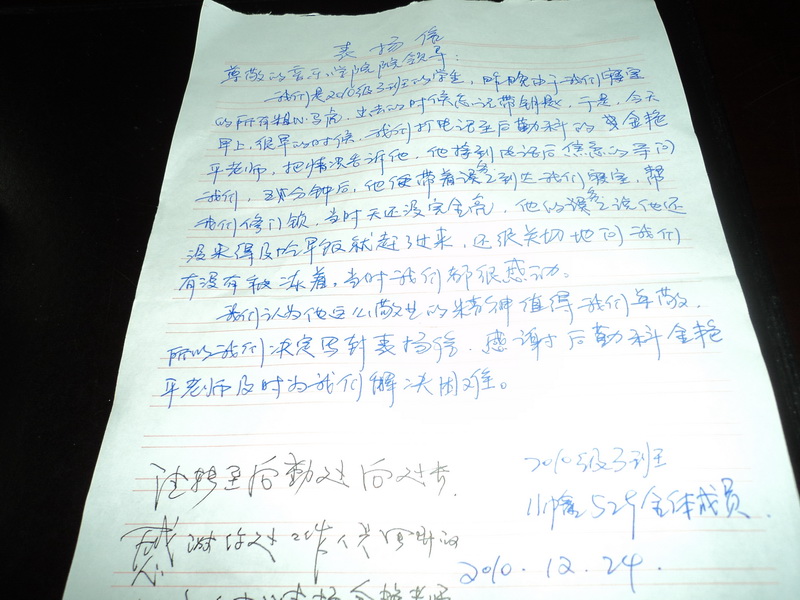 表扬信
尊敬的音乐学院院领导：
我们是2010级3班的学生，昨晚由于我们寝室
的所有粗心马虎，出去的时候忘记带钥匙，于是，今天
早上很早的时候，我们打电话至后勤科的 金艳
平老师，把情况告诉他，他接到电话后焦急的寻问
我们， 分钟后，他便带着 到达我们寝室，帮
我们修门锁，当时天还没完全亮，他的 说他还
没来得及吃早饭就赶了过来，还很关切地问我们
有没有被冻着，当时我们都很感动。
我们认为他这么敬业的精神值得我们尊敬，
所以我们决定写封表扬信，感谢 后勤科金艳
平老师及时为我们解决困难。
2010级3班
529全体成员
2010.12.24.
转至后勤处 处长
感谢 处工作